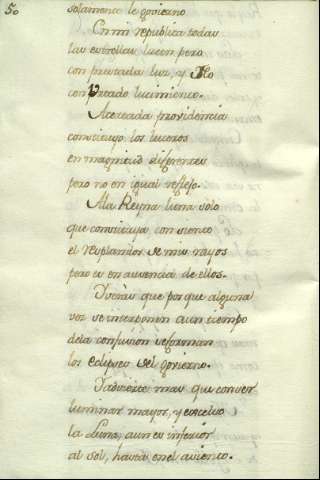 50
solamente le govierno
En mi republica todas
las estrellas lucen pero
con prestada luz, y
con prestado lucimiento.
Acercada providencia
constituyo los luceros
en magnitud diferentes
pero no en igual reflejo.
A la Reyna luna solo
que constituya consiento
el resplandor de mis rayos
pero es en ausencia de ellos.
Y veràs que por que alguna
vez se interponen a un tiempo
de la confusion se forman
los eclipses del govierno.
Y advierte mas que con ser
luminar mayor, y excelso
la Luna, aun es inferior
al sol, hasta en el aciento.